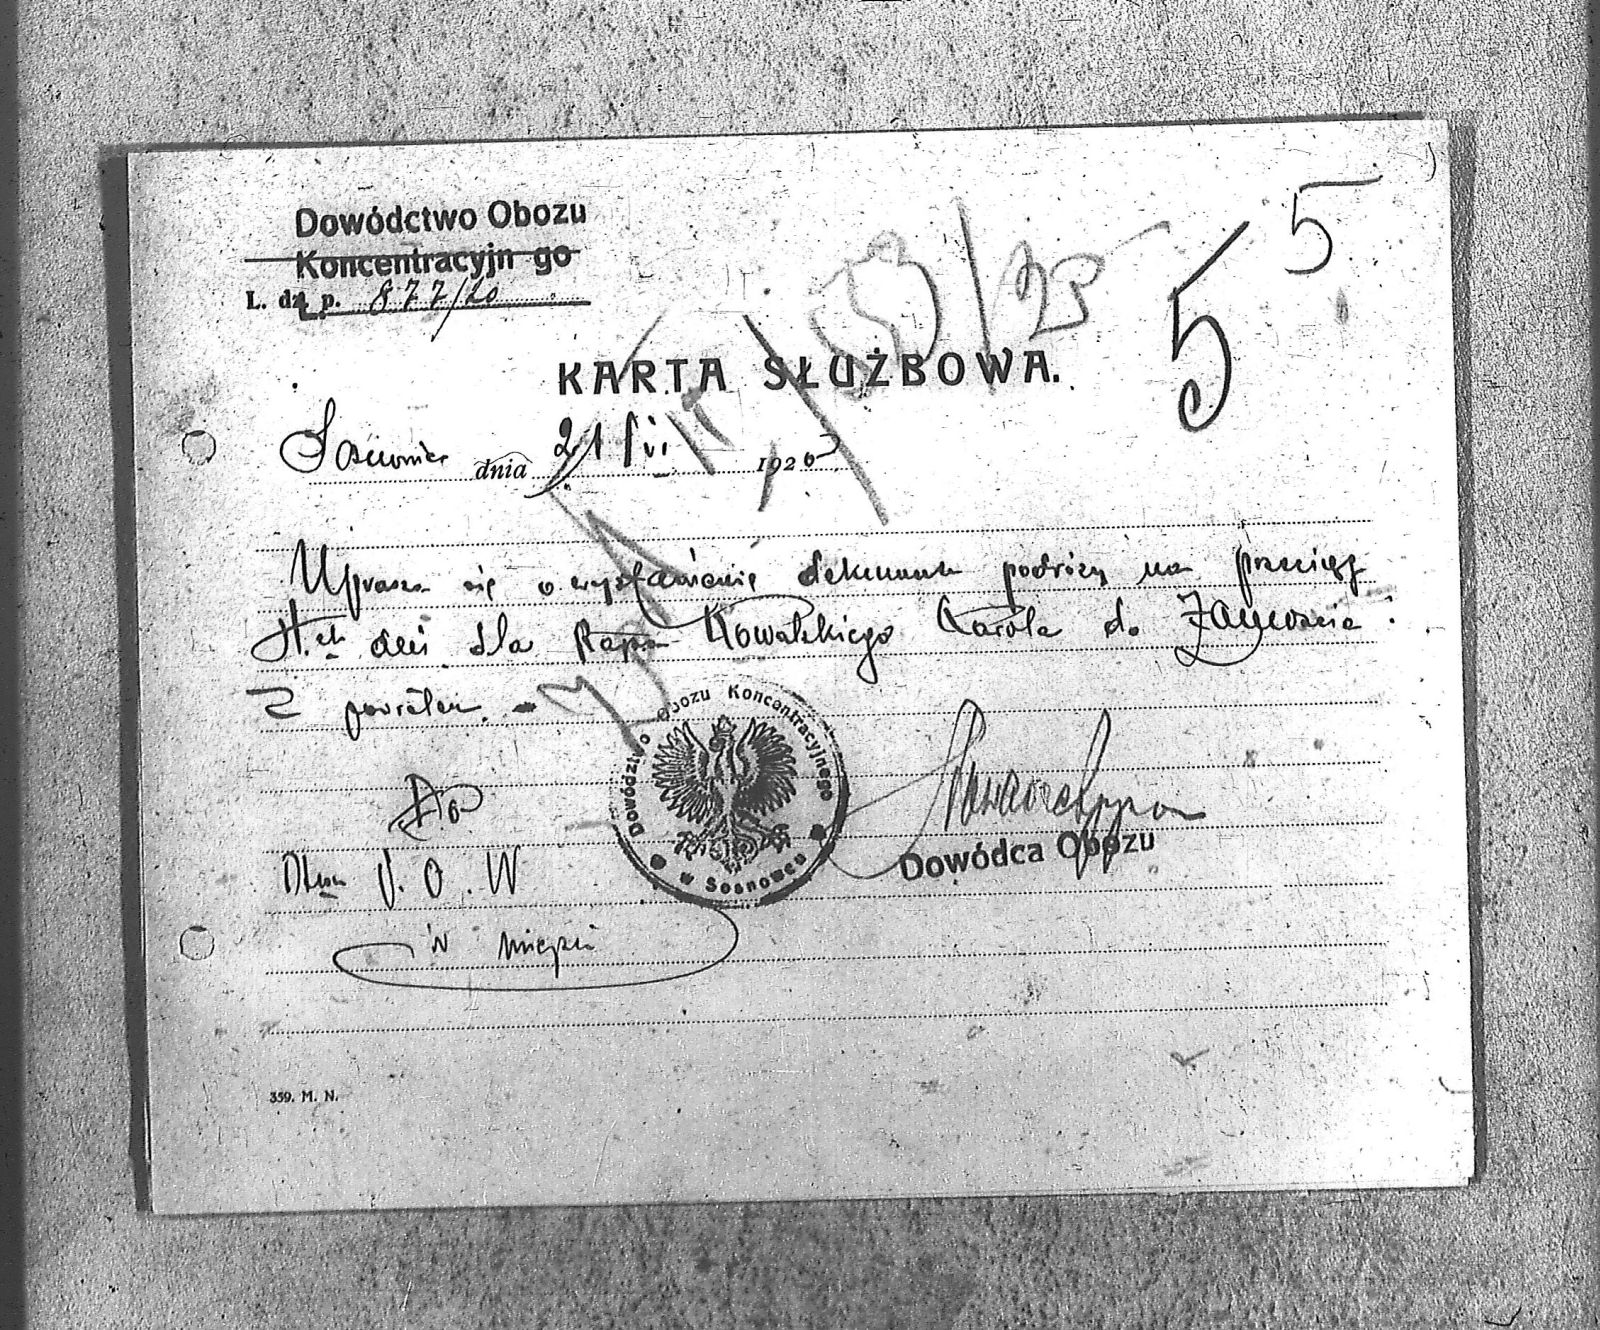 5
Dowództwo Obozu
Koncentracyjn go
L. dz. p. 877/20
5
KARTA SŁUŻBOWA.
Sosnowiec dnia 21/VI 1920
Uprasza się o wystawienie dokumentu podróży na przeciąg
dni dla Kowalskiego Karola do Zamościa
z powrotem. -
Dowództwo Obozu Koncentracyjnego
w Sosnowcu
Do
Dtwa P.O.W
w miejscu
Dowódca Obozu
359. M. N.